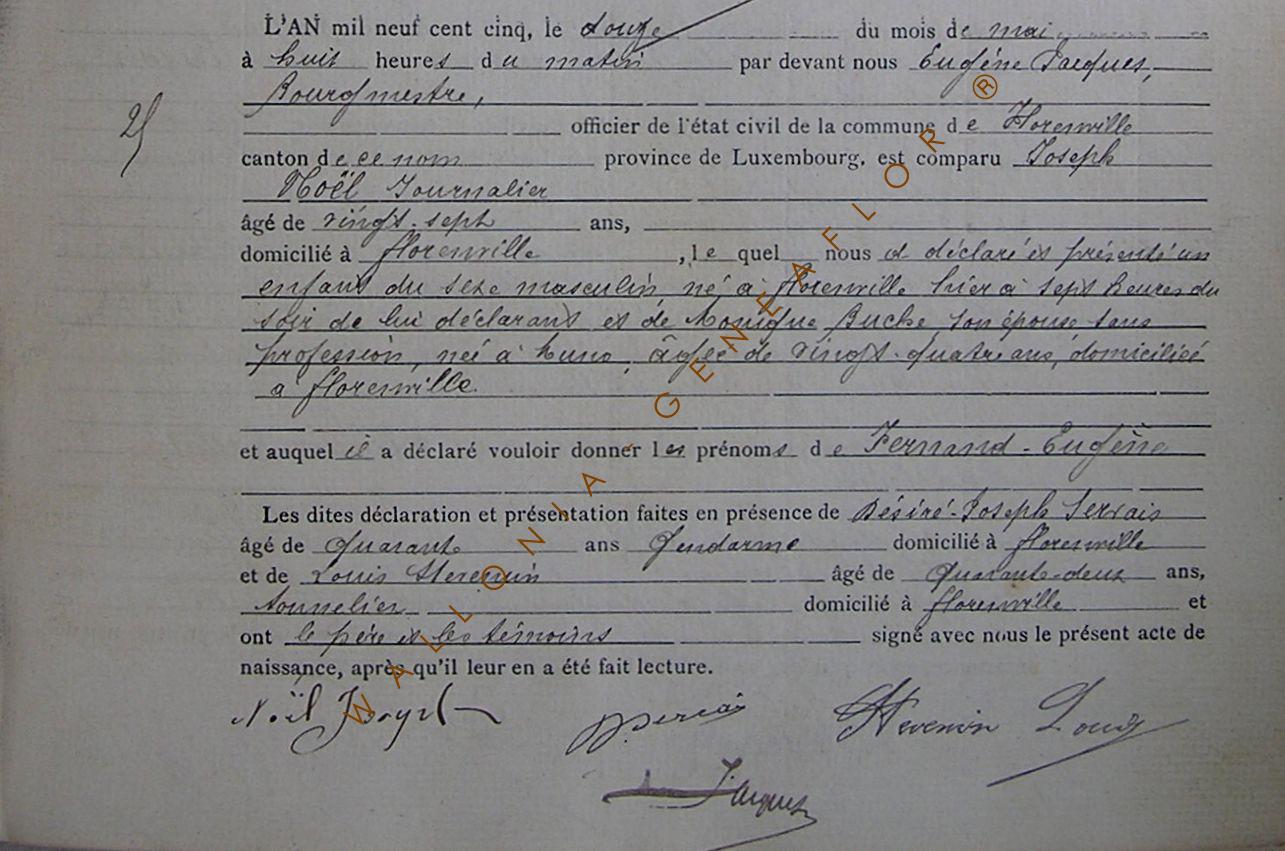 L'AN mil neuf cent cinq, le douze du mois de mai
à huit heures du matin par devant nous Eugène Jacques,
Bourgmestre,
25
officier de l'état civil de la commune de Florenville
canton de ce nom province de Luxembourg, est comparu Joseph
Noël Journalier
âgé de vingt-sept ans,
domicilié à florenville, lequel nous a déclaré et présenté un
enfant du sexe masculin, né à florenville hier à sept heures du
soir de lui déclarant et de Monique Buche son épouse sans
profession, née à Muno, âgée de vingt-quatre ans, domiciliée
à florenville.
et auquel il a déclaré vouloir donner les prénoms de Fernand-Eugène
Les dites déclaration et présentation faites en présence de Désiré-Joseph Servais
âgé de Quarante ans Gendarme domicilié à florenville
et de Louis Stevenin âgé de Quarante-deux ans,
tonnelier domicilié à florenville et
ont le père et les témoins signé avec nous le présent acte de
naissance, après qu'il leur en a été fait lecture.
Noël Joseph Servais Stevenin Louis
Jacques
WALLONIA - GENEAFLOR ®